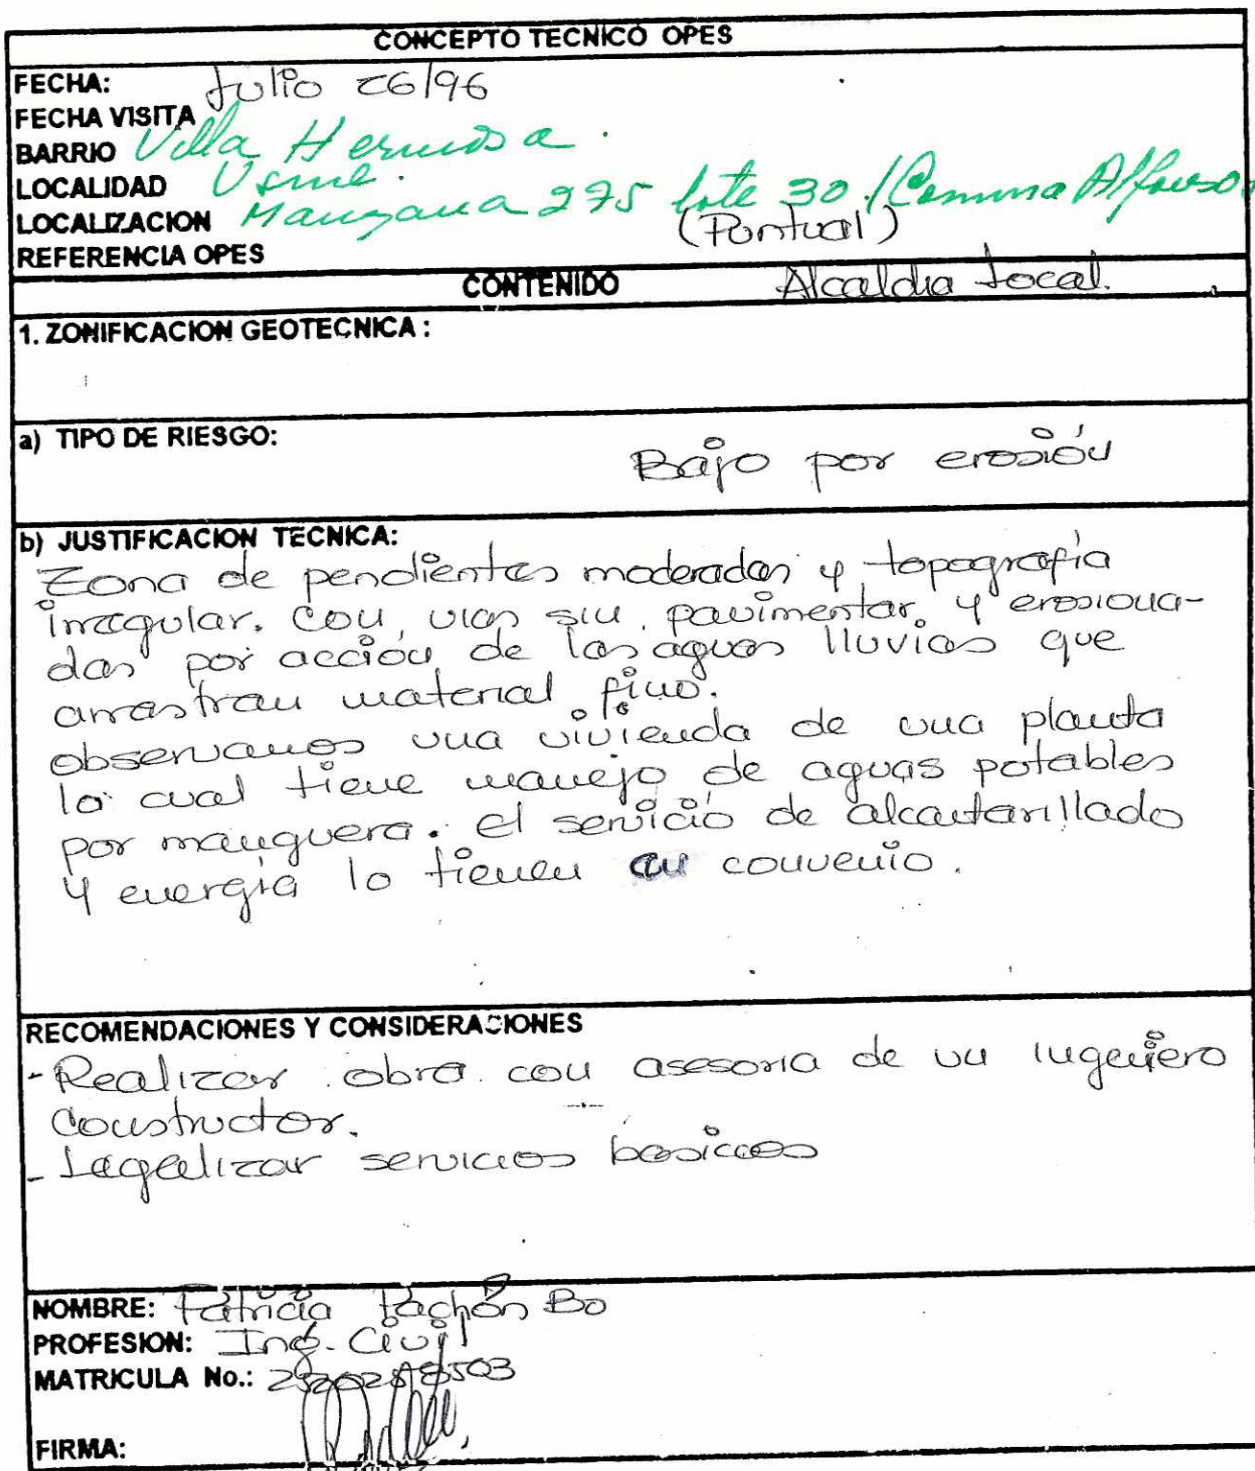 CONCEPTO TECNICO OPES
FECHA: Julio 26/96
FECHA VISITA
BARRIO Villa Hermosa.
LOCALIDAD Usme.
LOCALIZACION Manzana 275 lote 30 / (Comuna Alfonso
(Puntual)
REFERENCIA OPES
CONTENIDO Alcaldia Local.
1. ZONIFICACION GEOTECNICA :
a) TIPO DE RIESGO: Bajo por erosión
b) JUSTIFICACION TECNICA:
Zona de pendientes moderadas y topografía
irregular. con vias sin pavimentar y erosiona-
das por acción de las aguas lluvias que
arrastran material fino.
observamos una vivienda de una planta
la cual tiene manejo de aguas potables
por manguera. el servicio de alcantarillado
y energía lo tienen en convenio.
RECOMENDACIONES Y CONSIDERACIONES
- Realizar obra con asesoria de un ingeniero
Constructor.
- Legalizar servicios basicos
NOMBRE: Patricia Pachón Bo
PROFESION: Ing. Civil
MATRICULA No.:
FIRMA: